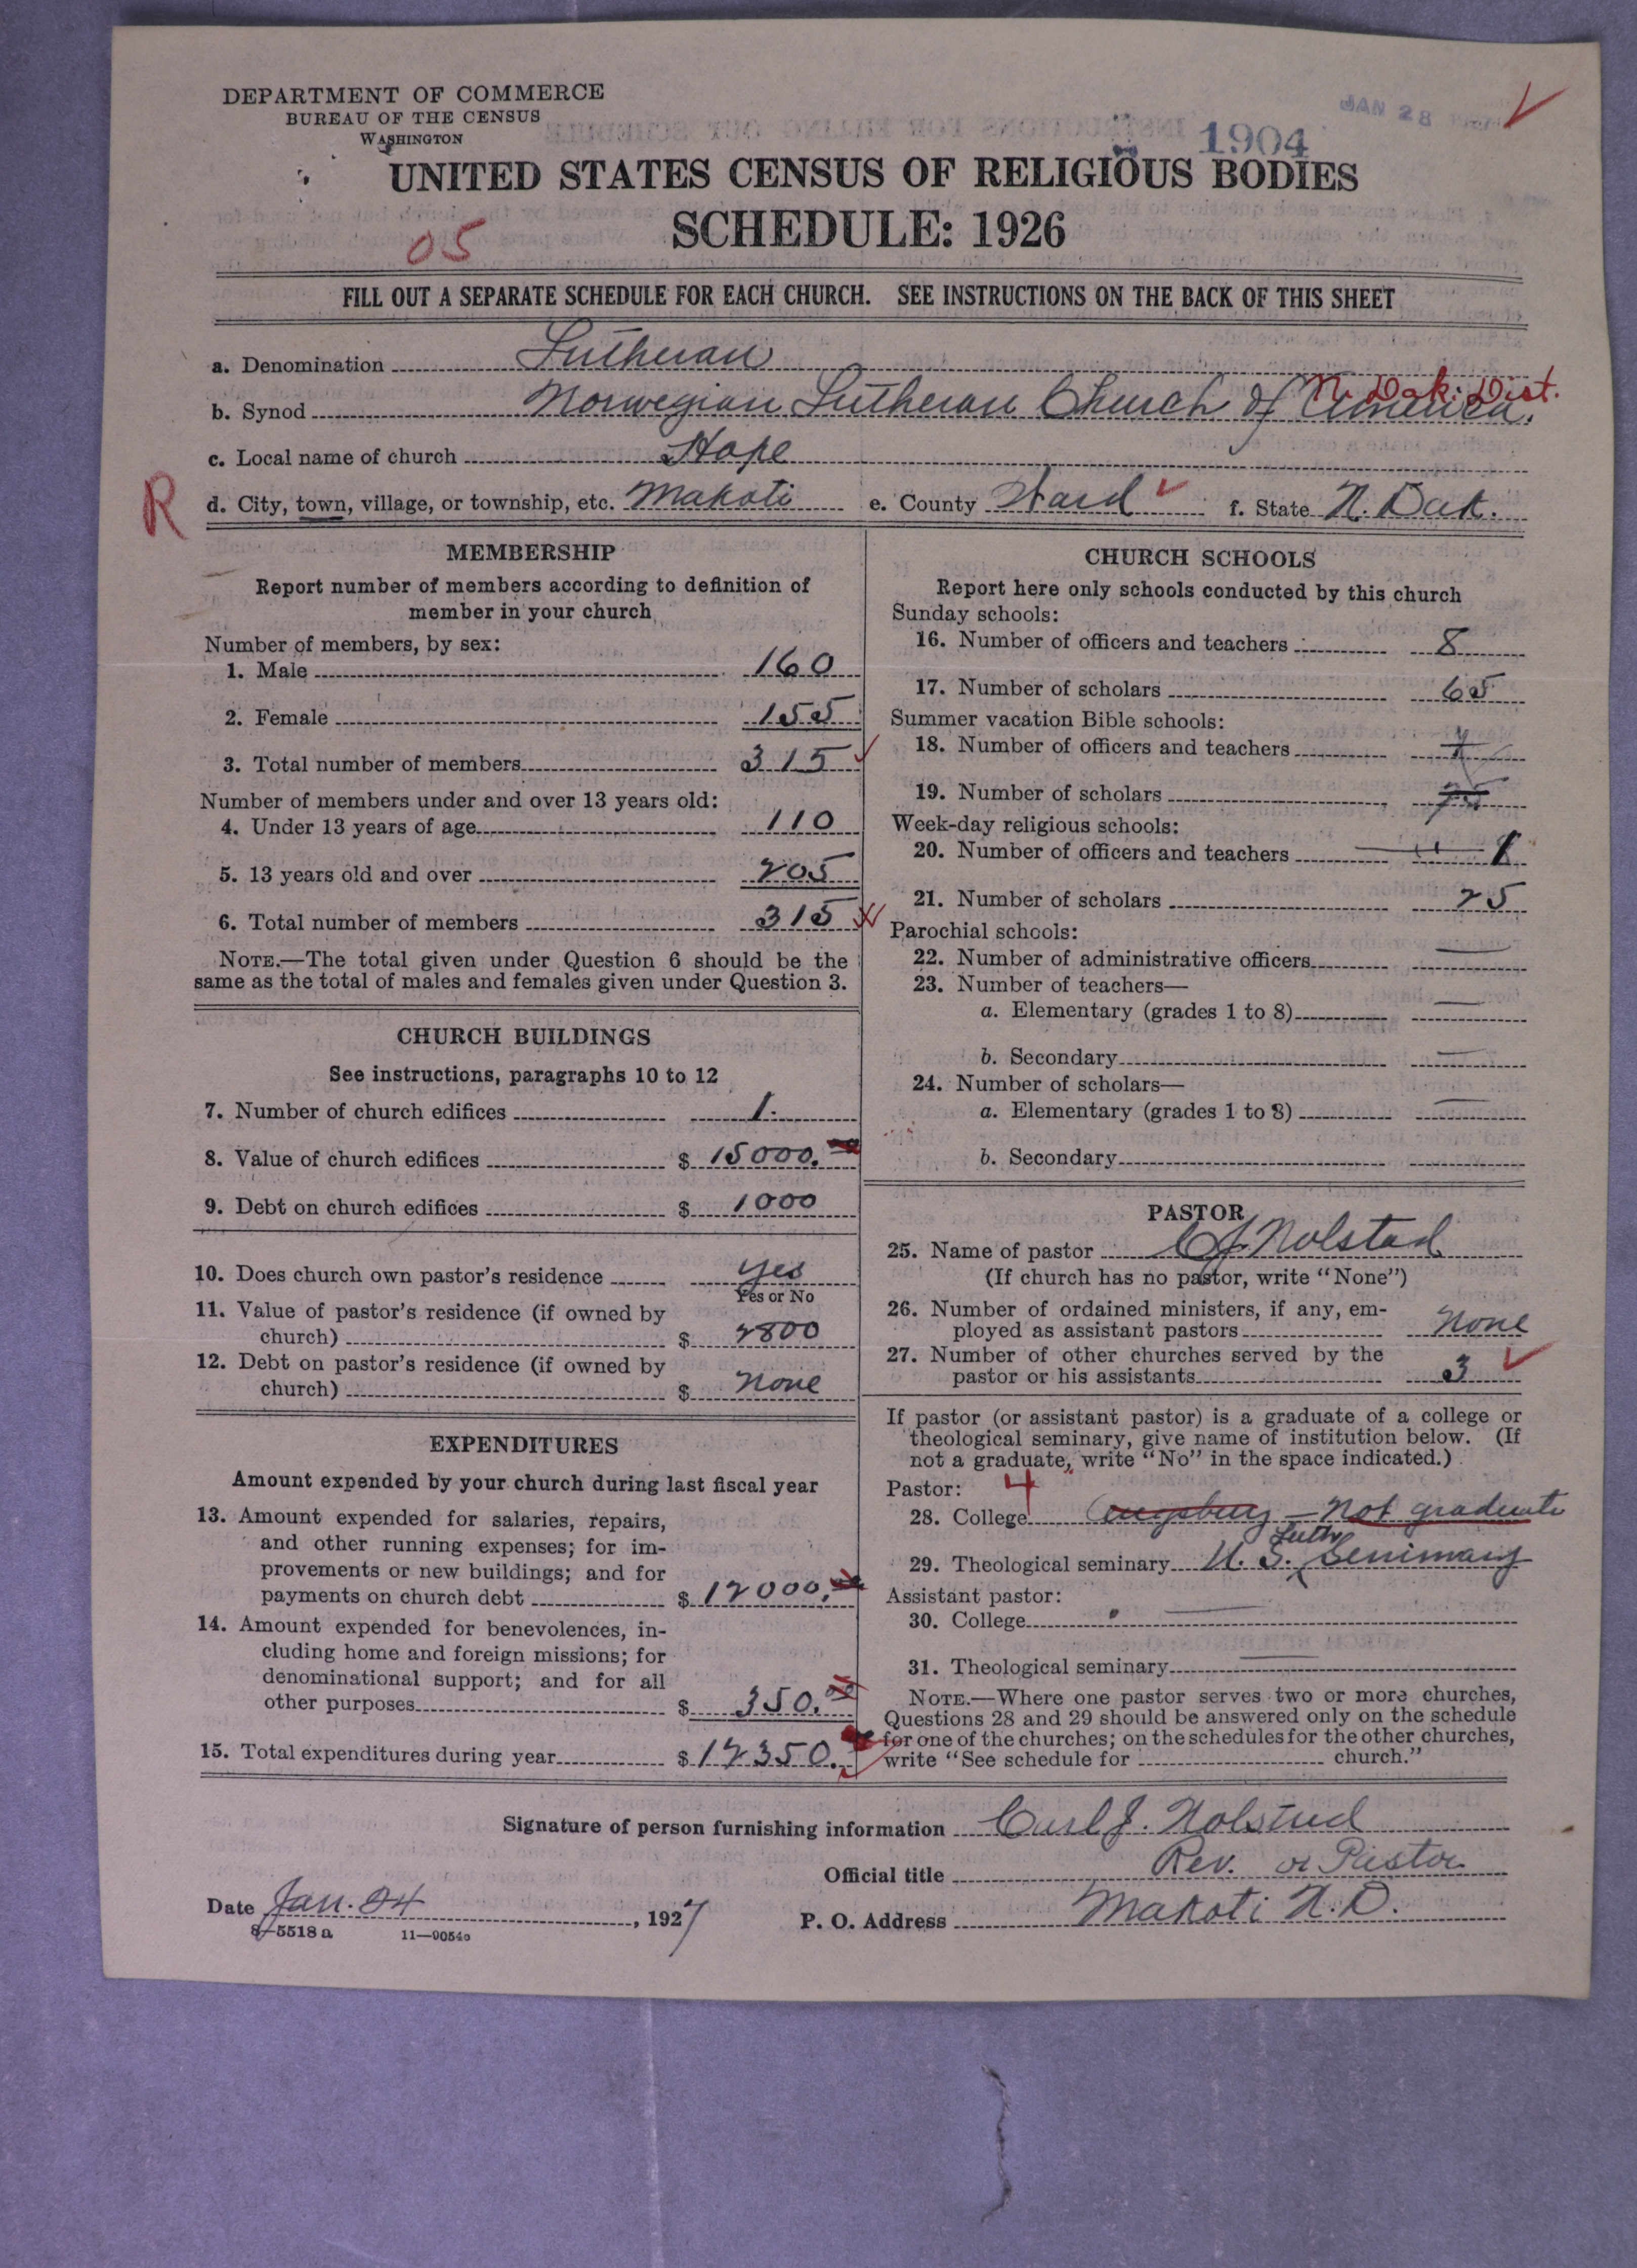 DEPARTMENT OF COMMERCE
BUREAU OF THE CENSUS
WASHINGTON
JAN 28
1904
UNITED STATES CENSUS OF RELIGIOUS BODIES
SCHEDULE: 1926
05
FILL OUT A SEPARATE SCHEDULE FOR EACH CHURCH. SEE INSTRUCTIONS ON THE BACK OF THIS SHEET
a. Denomination Lutheran
N. Dak. Dist.
b. Synod Norwegian Lutheran Church of America.
c. Local name of church Hope
R
d. City, town, village, or township, etc. Makoti e. County Ward f. State N. Dak.
MEMBERSHIP
Report number of members according to definition of
member in your church
Number of members, by sex:
1. Male 160
2. Female 155
3. Total number of members 315
Number of members under and over 13 years old:
4. Under 13 years of age 110
5. 13 years old and over 205
6. Total number of members 315
NOTE.—The total given under Question 6 should be the
same as the total of males and females given under Question 3.
CHURCH BUILDINGS
See instructions, paragraphs 10 to 12
7. Number of church edifices 1.
8. Value of church edifices $ 15000.
9. Debt on church edifices $ 1000
10. Does church own pastor's residence yes
Yes or No
11. Value of pastor's residence (if owned by
church) $ 2800
12. Debt on pastor's residence (if owned by
church) $ none
EXPENDITURES
Amount expended by your church during last fiscal year
13. Amount expended for salaries, repairs,
and other running expenses; for im-
provements or new buildings; and for
payments on church debt $ 12000.
14. Amount expended for benevolences, in-
cluding home and foreign missions; for
denominational support; and for all
other purposes $ 350.00
15. Total expenditures during year $ 12350.
CHURCH SCHOOLS
Report here only schools conducted by this church
Sunday schools:
16. Number of officers and teachers 8
17. Number of scholars 65
Summer vacation Bible schools:
18. Number of officers and teachers
19. Number of scholars
Week-day religious schools:
20. Number of officers and teachers 1
21. Number of scholars 25
Parochial schools:
22. Number of administrative officers —
23. Number of teachers—
a. Elementary (grades 1 to 8) —
b. Secondary —
24. Number of scholars—
a. Elementary (grades 1 to 8) —
b. Secondary
PASTOR
25. Name of pastor C J. Nolstad
(If church has no pastor, write "None")
26. Number of ordained ministers, if any, em-
ployed as assistant pastors None
27. Number of other churches served by the
pastor or his assistants 3
If pastor (or assistant pastor) is a graduate of a college or
theological seminary, give name of institution below. (If
not a graduate, write "No" in the space indicated.)
Pastor: 4
28. College Augsburg — Not graduate
29. Theological seminary U. S. Luth Seminary
Assistant pastor:
30. College —
31. Theological seminary —
NOTE.—Where one pastor serves two or more churches,
Questions 28 and 29 should be answered only on the schedule
for one of the churches; on the schedules for the other churches,
write "See schedule for church."
Signature of person furnishing information Carl J. Nolstad
Official title Rev. or Pastor
Date Jan. 24, 1927 P. O. Address Makoti N.D.
8—5518 a 11—9054